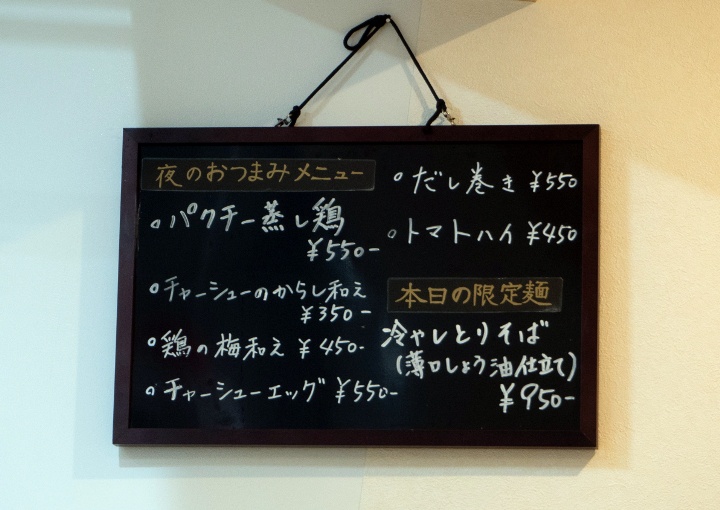 夜のおつまみメニュー
。パクチー蒸し鶏
¥550-
。チャーシューのからし和え
¥350-
。鶏の梅和え ¥450-
。チャーシューエッグ ¥550-
。だし巻き ¥550
。トマトハイ ¥450
本日の限定麺
冷やしとりそば
(薄口しょう油仕立て)
¥950-